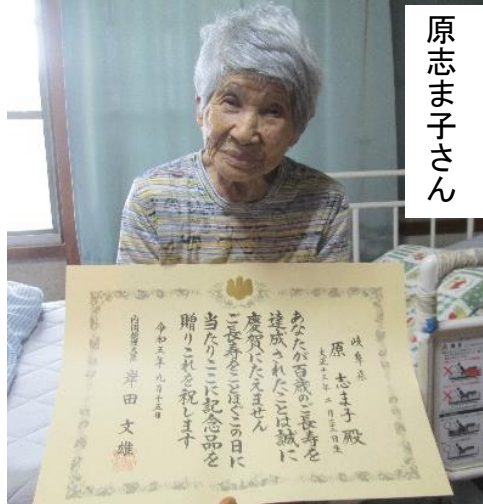 原志ま子さん
岐阜県
原 志ま子 殿
大正十三年 二月
あなたが百歳のご長寿を
達成されたことは誠に
慶賀にたえません
ご長寿をことほぐこの日に
当たりここに記念品を
贈りこれを祝します
令和五年九月十五日
内閣総理大臣 岸田文雄